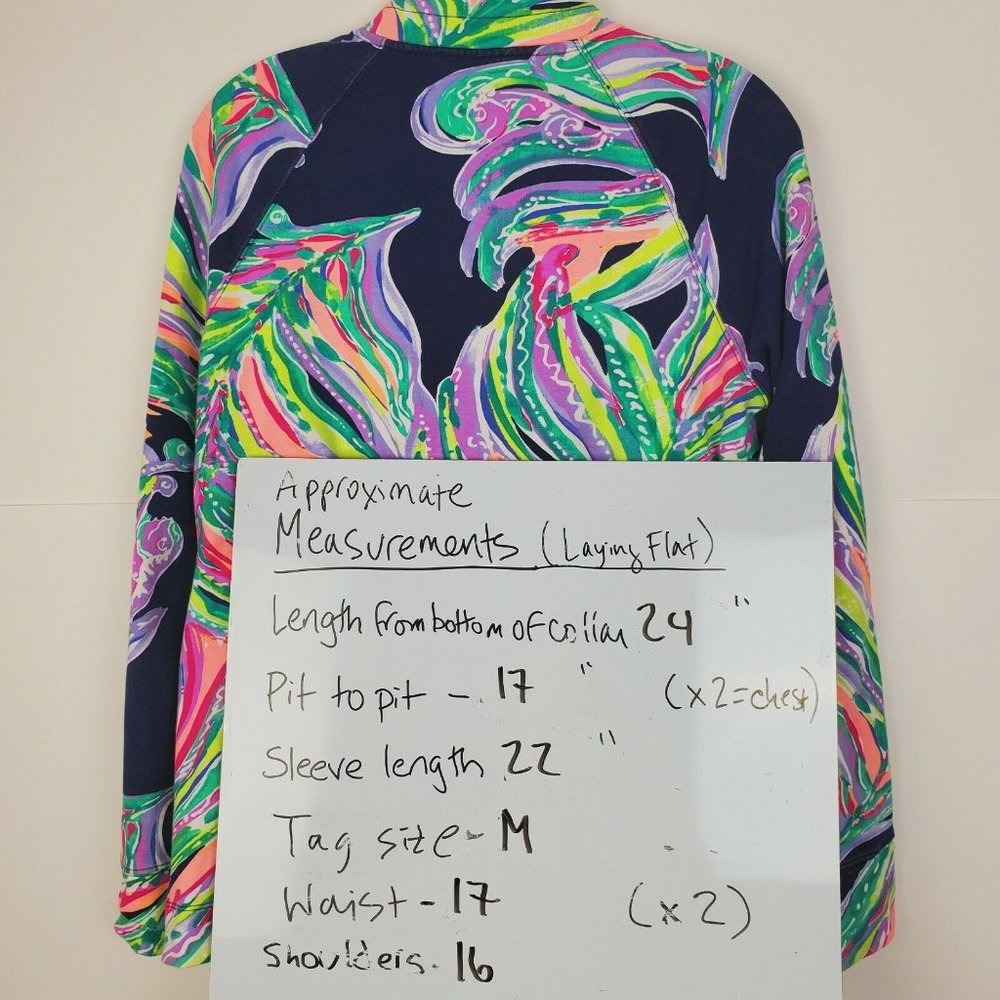 Approximate
Measurements (Laying Flat)
Length from bottom of collar 24 "
Pit to pit - 17 " (x2=chest)
Sleeve length 22 "
Tag size - M
Waist - 17 (x2)
Shoulders - 16